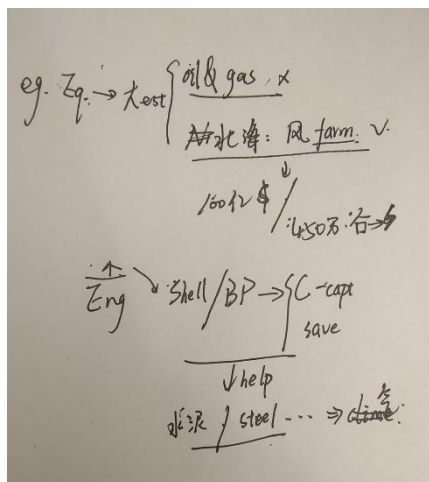 eg. Eq. → 大est { oil & gas. x
北海: 风 farm. √.
↓
100亿 $ / 450万
个
Eng ↘ Shell / BP → { C-capt
save
↓ help
水泥 / steel ... ⇒ 气